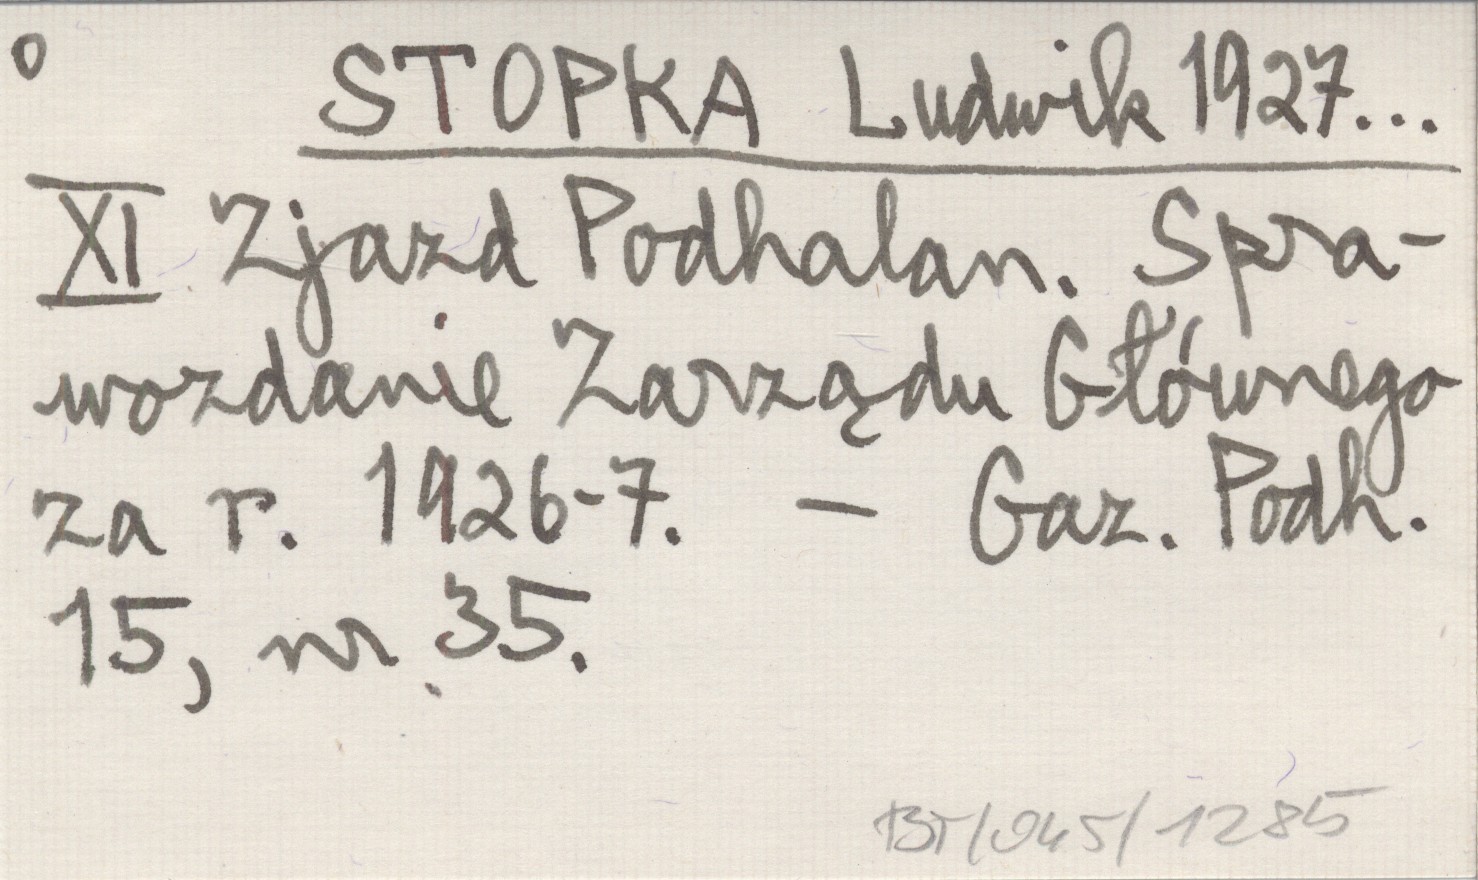 o
STOPKA Ludwik 1927...
XI Zjazd Podhalan. Spra-
wozdanie Zarządu Głównego
za r. 1926-7. – Gaz. Podh.
15, nr 35.
BT/045/1285